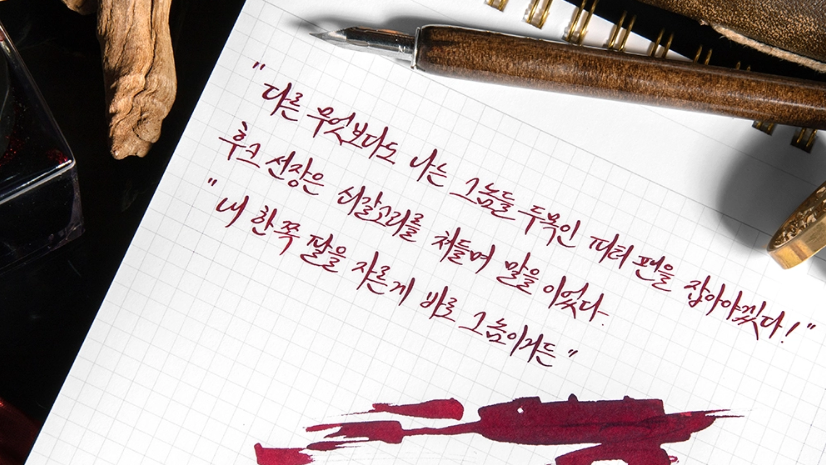 "다른 무엇보다도 나는 그놈들 두목인 피터 팬을 잡아야겠다!"
후크 선장은 쇠갈고리를 쳐들며 말을 이었다.
"내 한쪽 팔을 자른게 바로 그놈이거든"